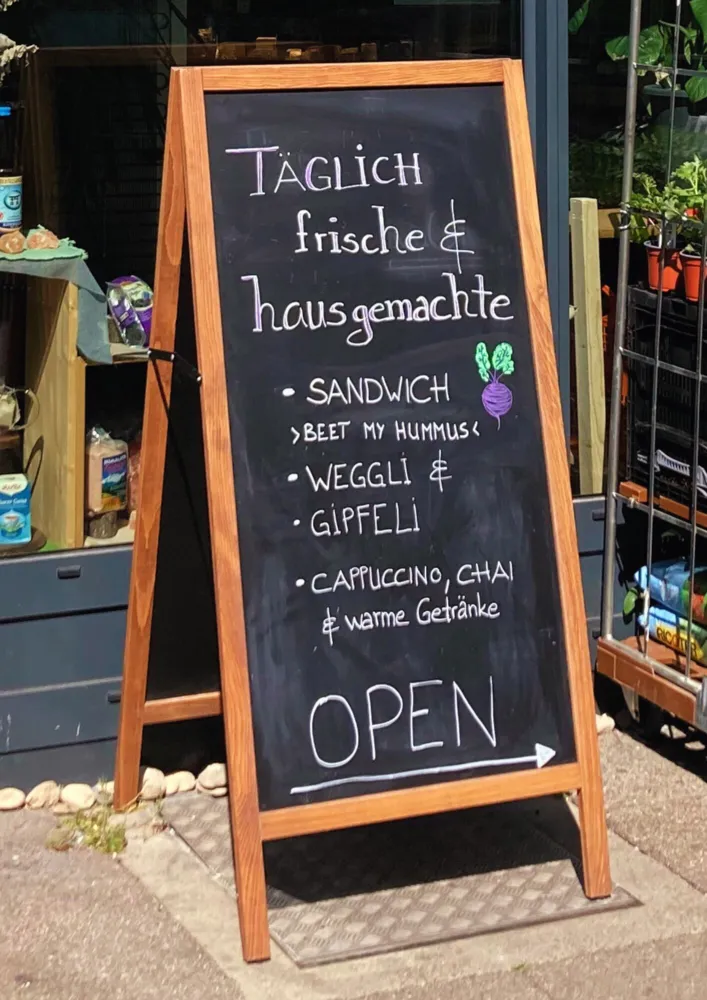 TÄGLICH
frische &
hausgemachte
• SANDWICH
>BEET MY HUMMUS<
• WEGGLI &
• GIPFELI
• CAPPUCCINO, CHAI
& warme Getränke
OPEN